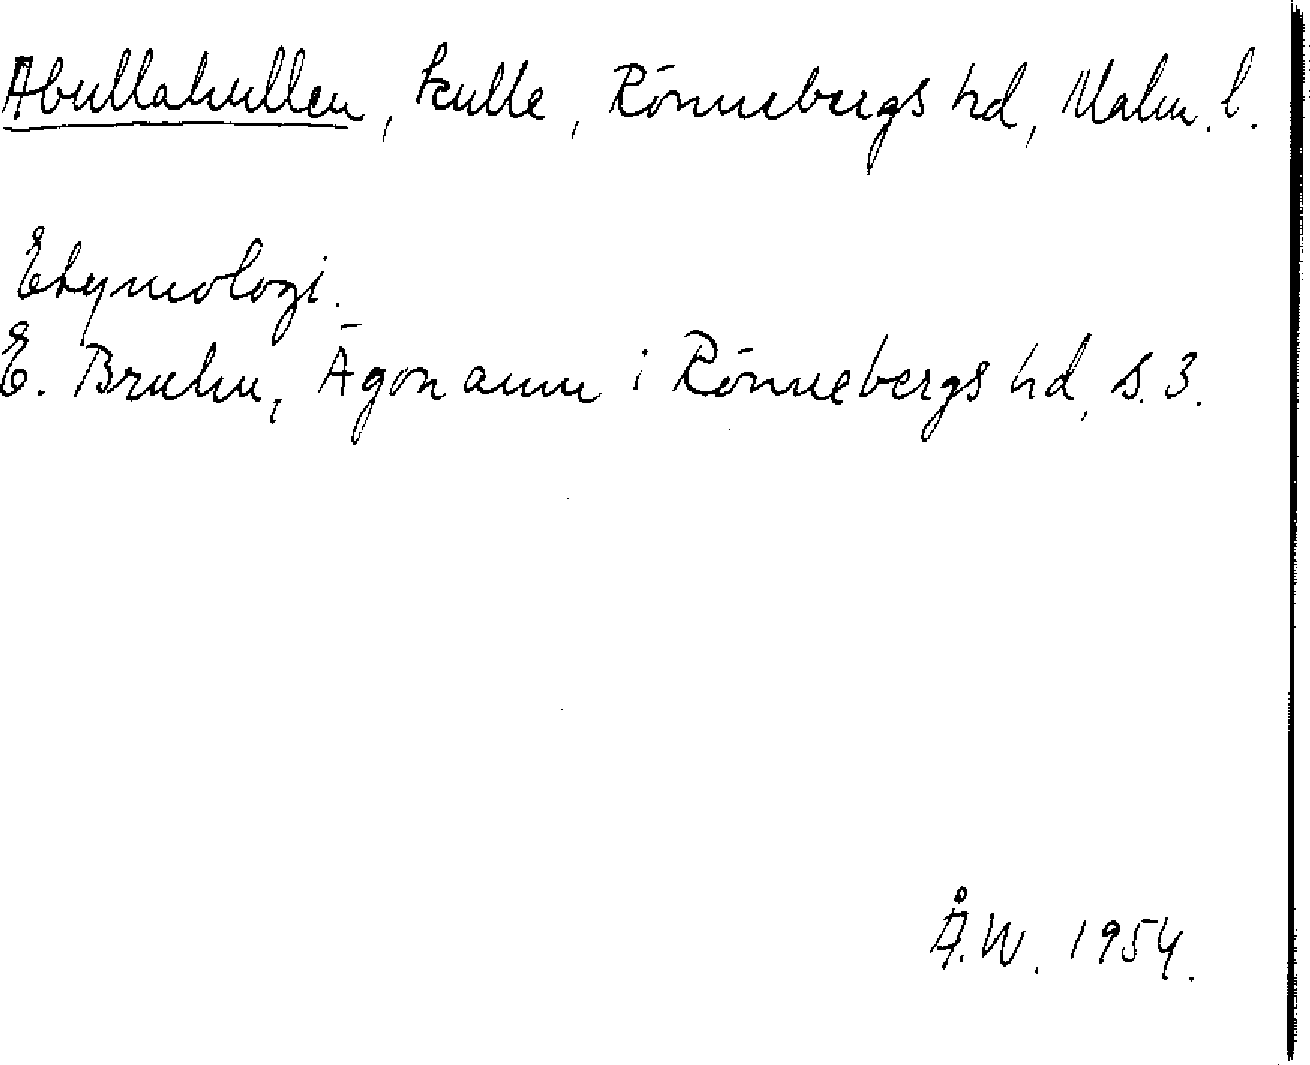 Abullahullen, kulle, Rönnebergs hd, Malm. l.
Etymologi.
E. Bruhn, Ägonamn i Rönnebergs hd, s. 3.
Å.W. 1954.